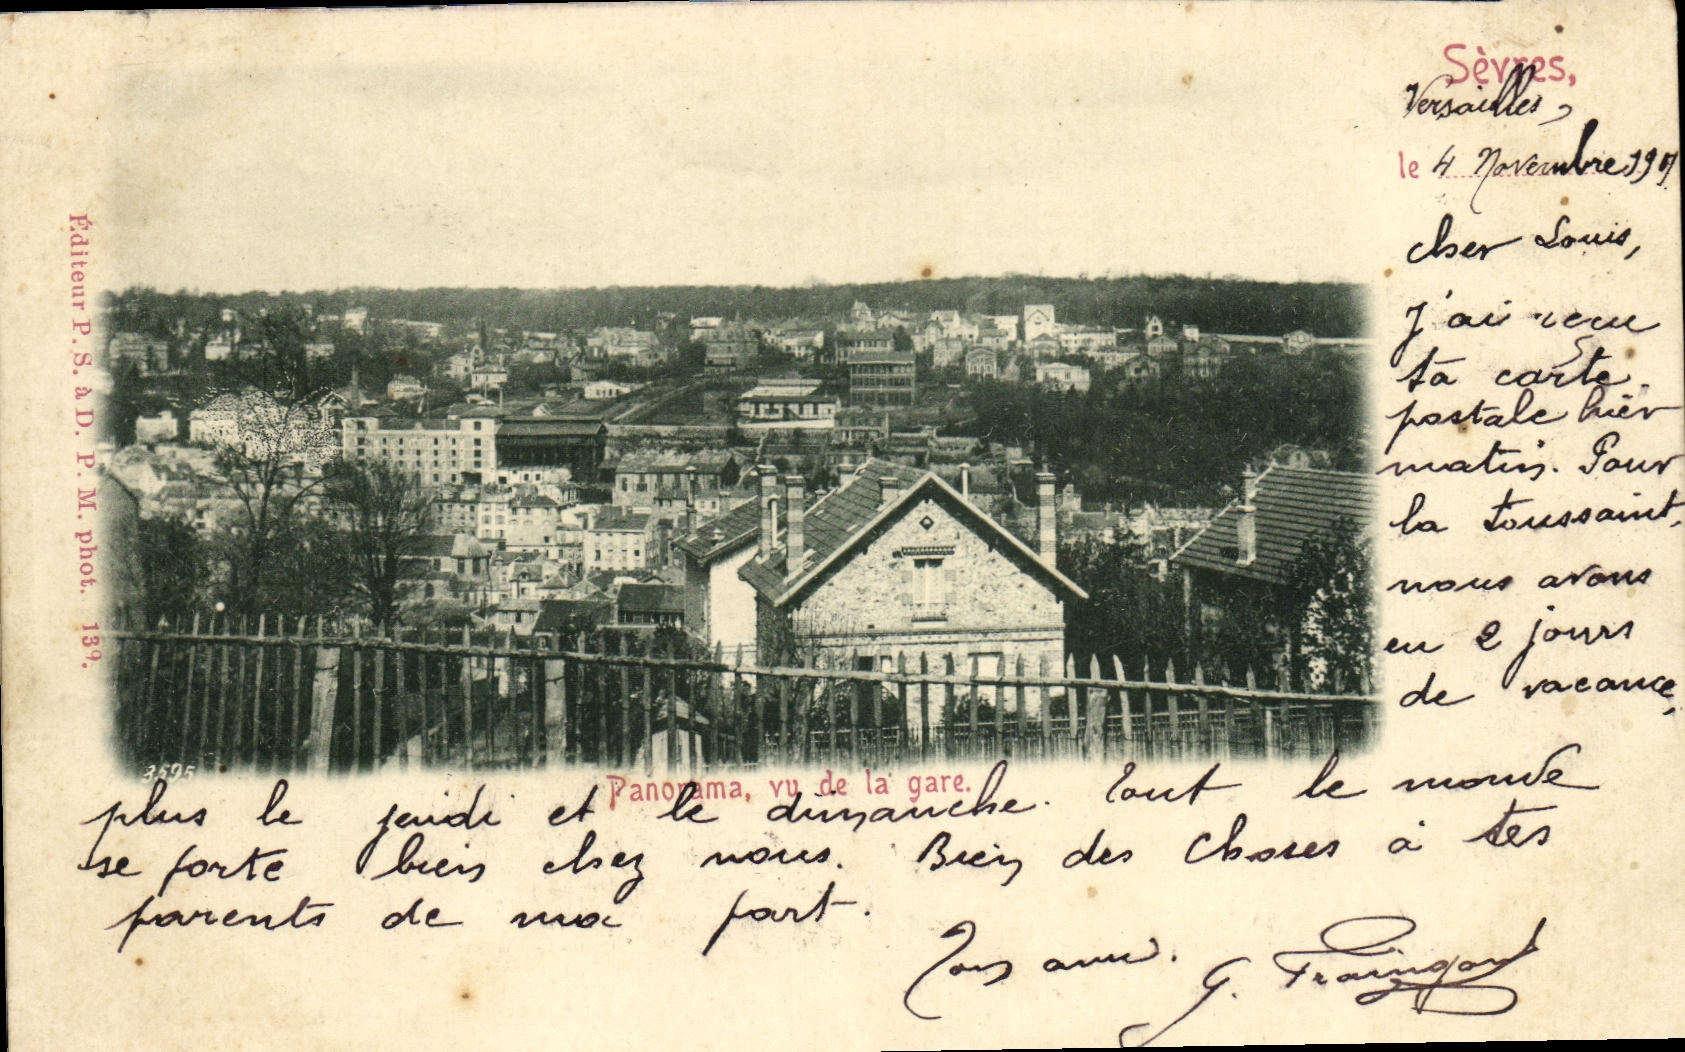 Sèvres,
Versailles,
le 4 Novembre 190
cher Louis,
J'ai reçu
ta carte
postale hier
matin. Pour
la toussaint,
nous avons
eu 2 jours
de vacance,
plus le jeudi et le dimanche. Tout le monde
se porte bien chez nous. Bien des choses à tes
parents de ma part.
Ton ami.
G.
Panorama, vu de la gare.
Éditeur P. S. à D. P. M. phot. 139.
3595